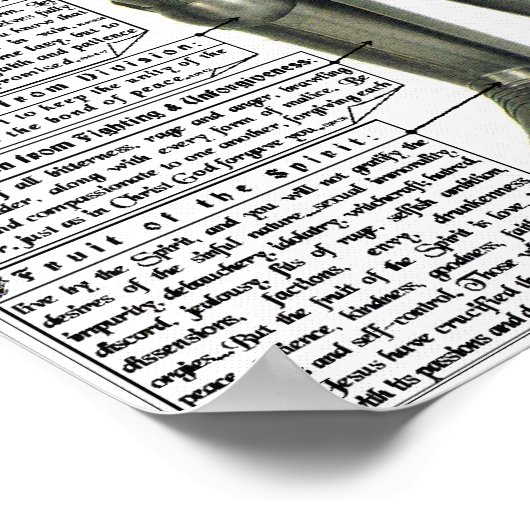 know that
with
lazy, but to
ith and patience
promised
from Division:
to keep the unity of the
the bond of peace
from Fighting & Unforgiveness:
f all bitterness, rage and anger, brawling
along with every form of malice. Be
nd compassionate to one another, forgiving each
r, just as in Christ God forgave you
Fruit of the Spirit:
live by the Spirit, and you will not gratify the
desires of the sinful nature...sexual immorality,
impurity, debauchery, idolatry, witchcraft; hatred,
discord, jealousy, fits of rage, selfish ambition
dissensions, factions, envy, drunkenness
orgies...(But the fruit of the Spirit is love,
peace kindness, goodness,
and self-control, Those
Jesus have crucified
ith its passions and